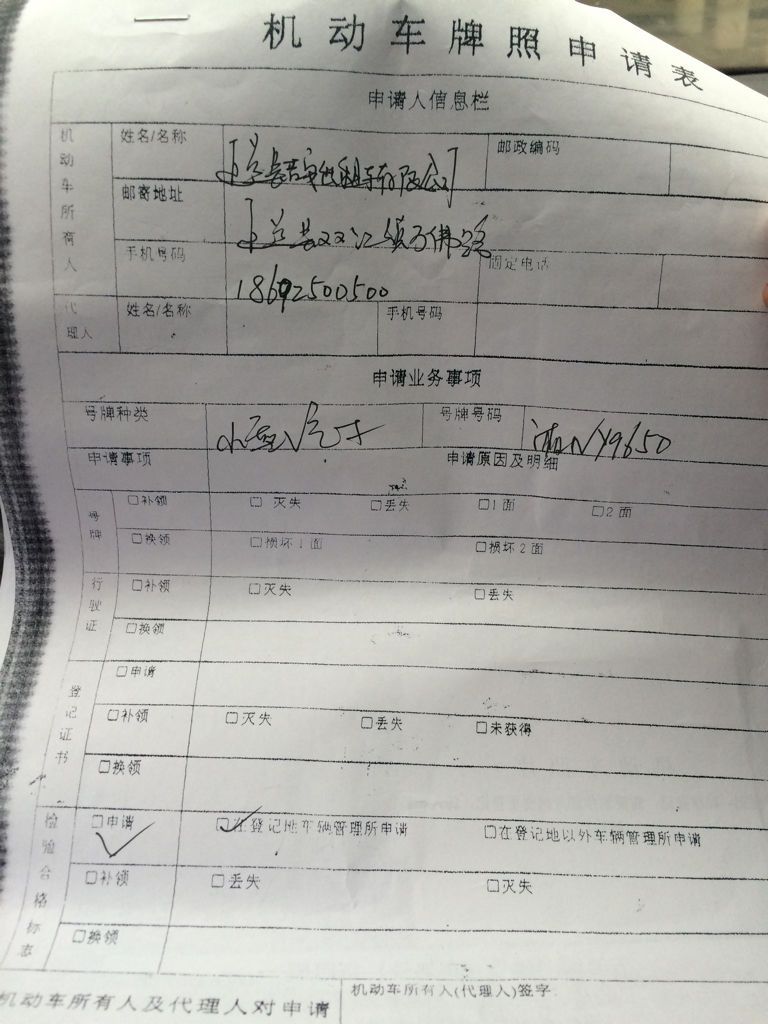 机动车牌照申请表
申请人信息栏
机动车所有人
姓名/名称
有限公司
邮政编码
邮寄地址
双江镇
手机号码
18692500500
固定电话
代理人
姓名/名称
手机号码
申请业务事项
号牌种类
小型汽车
号牌号码
湘NY9650
申请事项
申请原因及明细
号牌
□补领 □灭失 □丢失 □1面 □2面
□换领 □损坏1面 □损坏2面
行驶证
□补领 □灭失 □丢失
□换领
登记证书
□申请
□补领 □灭失 □丢失 □未获得
□换领
检验合格标志
□申请 □在登记地车辆管理所申请 □在登记地以外车辆管理所申请
□补领 □丢失 □灭失
□换领
机动车所有人及代理人对申请
机动车所有人(代理人)签字: